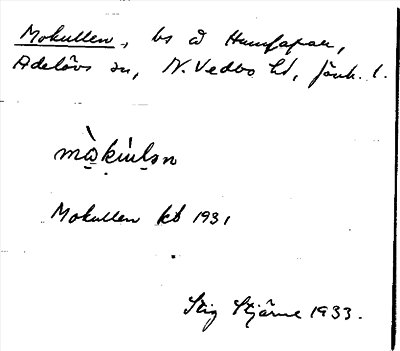 Mokullen, bs å Hunsapar,
Adelövs sn, N. Vedbo hd, Jönk. l.
Mokullen kb 1931
Stig Stjärne 1933.